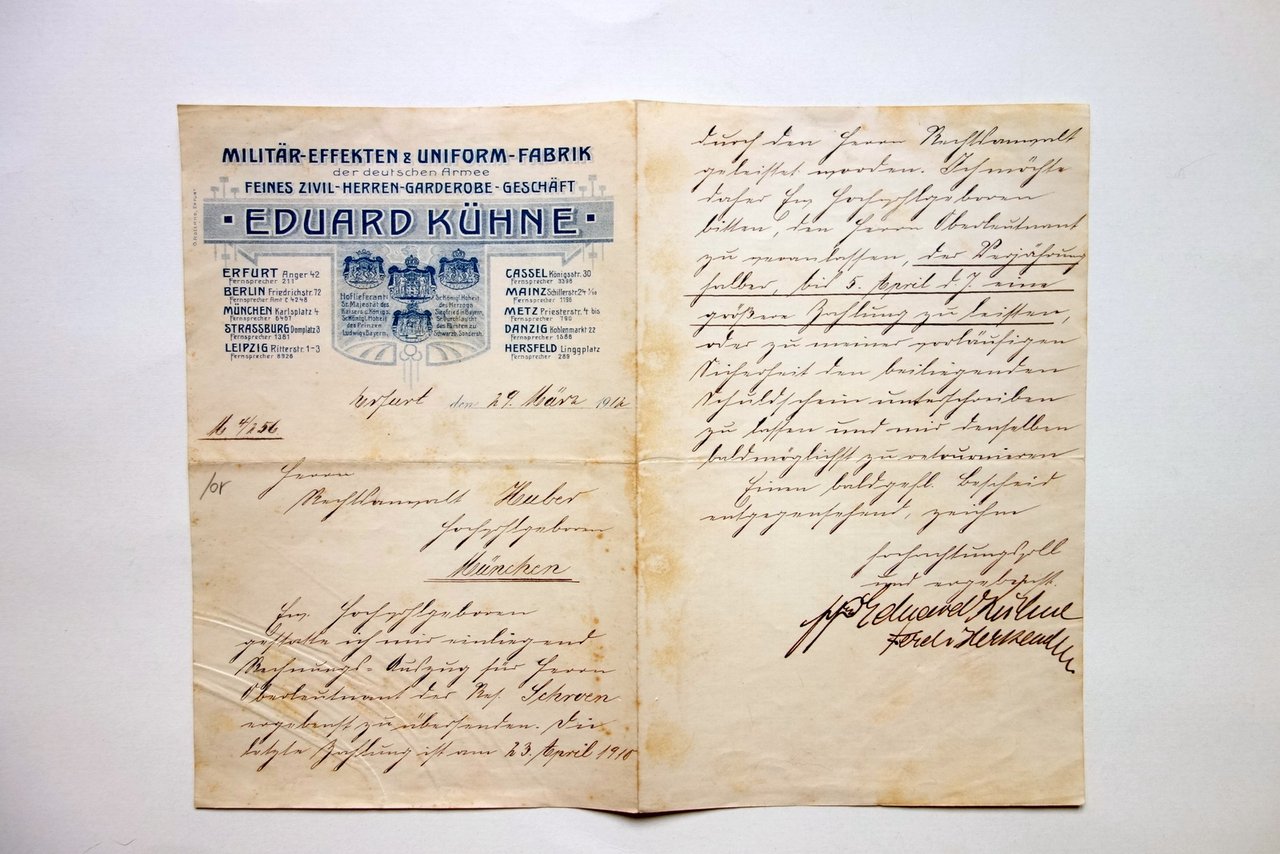 MILITÄR-EFFEKTEN & UNIFORM-FABRIK
der deutschen Armee
FEINES ZIVIL-HERREN-GARDEROBE-GESCHÄFT
EDUARD KÜHNE
ERFURT Anger 42
Fernsprecher 211
BERLIN Friedrichstr. 72
Fernsprecher Amt I 4248
MÜNCHEN Karlsplatz 4
Fernsprecher 6467
STRASSBURG Domplatz 3
Fernsprecher 1381
LEIPZIG Ritterstr. 1-3
Fernsprecher 8926
Hoflieferant
Sr. Majestät des
Kaisers u. Königs.
Sr. Königl. Hoheit
des Prinzen
Ludwig v. Bayern.
Sr. Königl. Hoheit
des Herzogs
Siegfried in Bayern.
Sr. Durchlaucht
des Fürsten zu
Schwarzb. Sondersh.
CASSEL Königsstr. 30
Fernsprecher 3398
MAINZ Schillerstr. 24
Fernsprecher 1196
METZ Priesterstr. 4 bis
Fernsprecher 790
DANZIG Kohlenmarkt 22
Fernsprecher 1586
HERSFELD Linggplatz
Fernsprecher 289
Erfurt den 29. März 1912
M 4/256
Herrn
Rechtsanwalt Huber
Hochwohlgeboren
München
Ew. Hochwohlgeboren
gestatte ich mir einliegend
Rechnungs-Auszug für Herrn
Oberleutnant der Res. Schroen
ergebenst zu übersenden. Die
letzte Zahlung ist am 23. April 1910
durch den Herrn Rechtsanwalt
geleistet worden. Ich möchte
daher Ew Hochwohlgeboren
bitten, den Herrn Oberleutnant
zu veranlassen, der Verjährung
halber, bis 5. April d. J. eine
größere Zahlung zu leisten,
oder zu meiner vorläufigen
Sicherheit den beiliegenden
Schuldschein unterschreiben
zu lassen und mir denselben
baldmöglichst zu retournieren
Einen baldgefl. Bescheid
entgegensehend, zeichne
hochachtungsvoll
und ergebenst
ppa Eduard Kühne